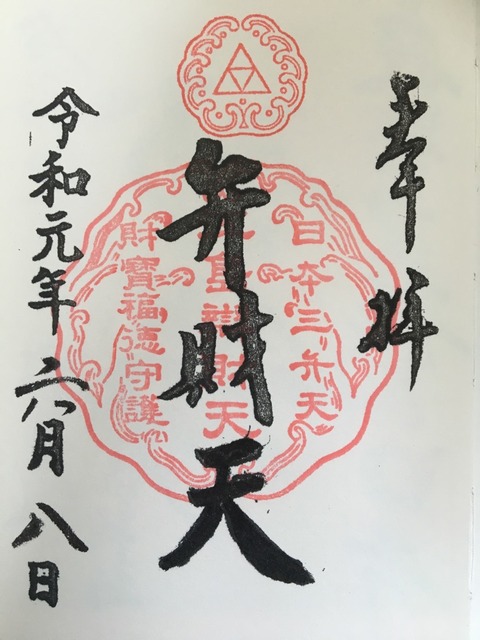 奉拝
日本三弁天
弁財天
財寶福徳守護
令和元年六月八日